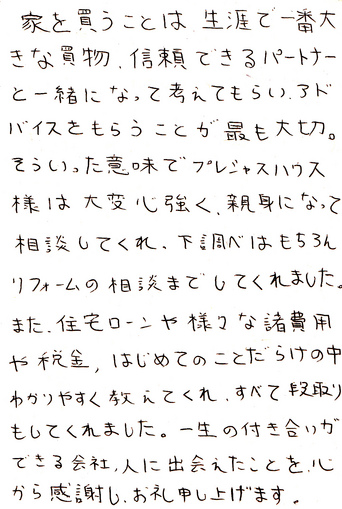 家を買うことは生涯で一番大
きな買物、信頼できるパートナー
と一緒になって考えてもらい、アド
バイスをもらうことが最も大切。
そういった意味でプレシャスハウス
様は大変心強く、親身になって
相談してくれ、下調べはもちろん
リフォームの相談までしてくれました。
また、住宅ローンや様々な諸費用
や税金、はじめてのことだらけの中
わかりやすく教えてくれ、すべて段取り
もしてくれました。一生の付き合いが
できる会社、人に出会えたことを、心
から感謝し、お礼申し上げます。